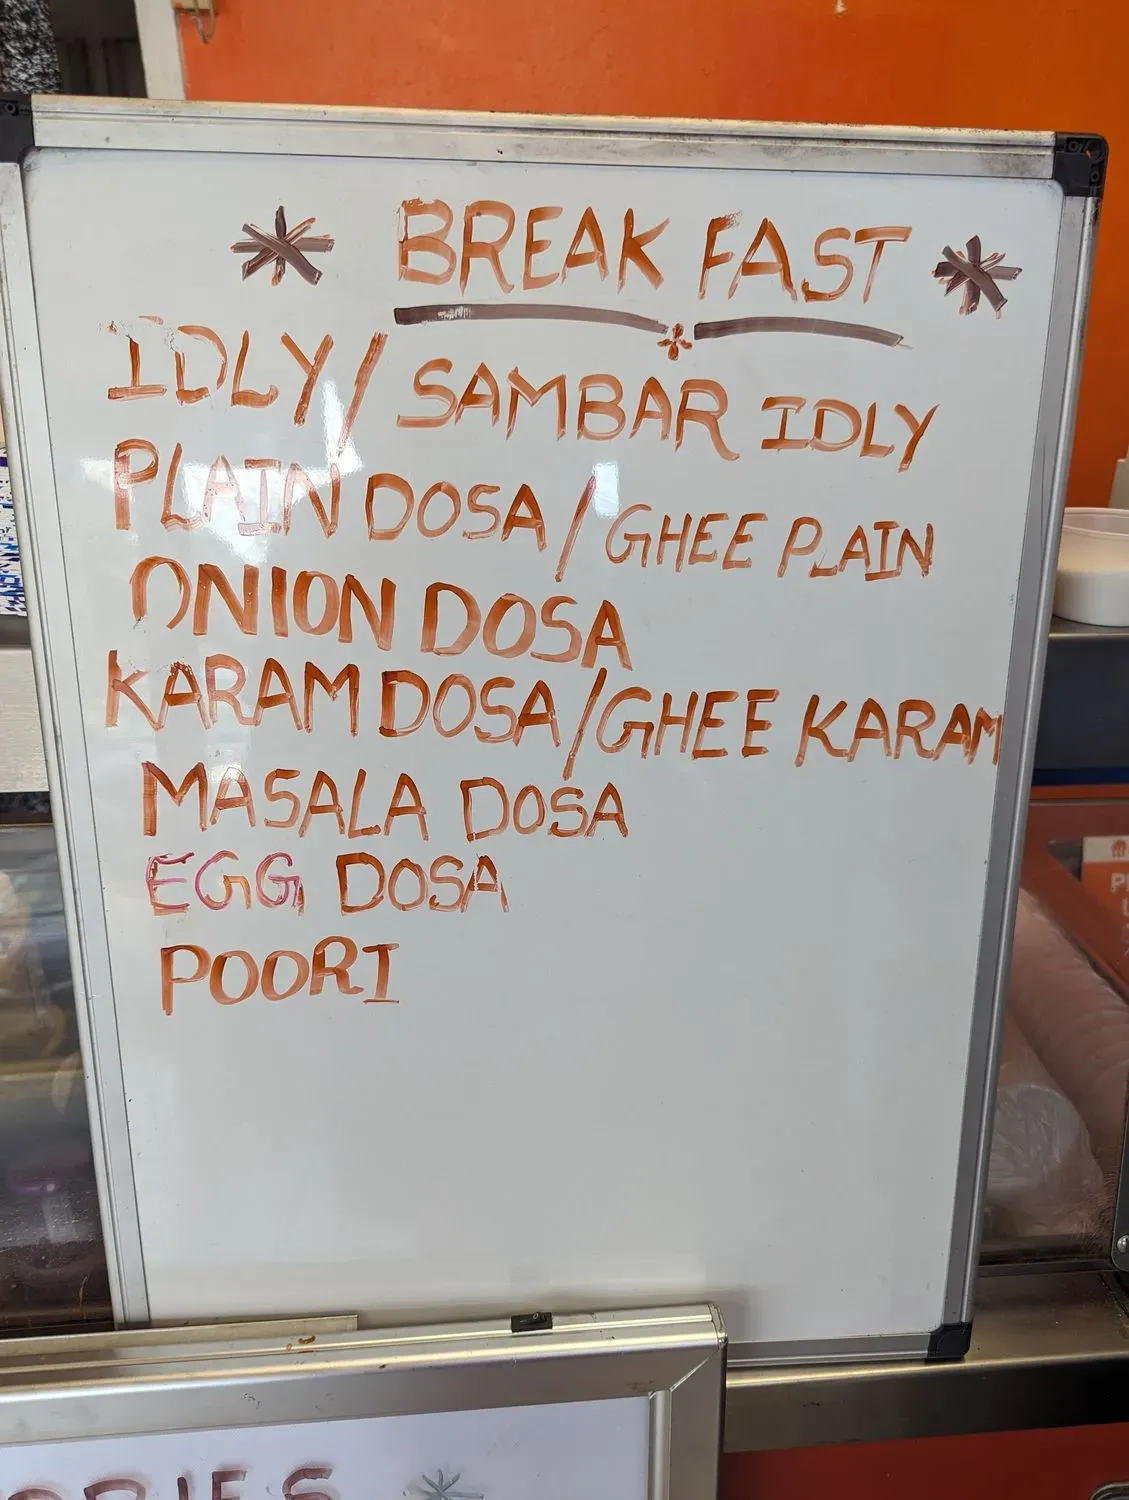 BREAK FAST
IDLY / SAMBAR IDLY
PLAIN DOSA / GHEE PLAIN
ONION DOSA
KARAM DOSA / GHEE KARAM
MASALA DOSA
EGG DOSA
POORI